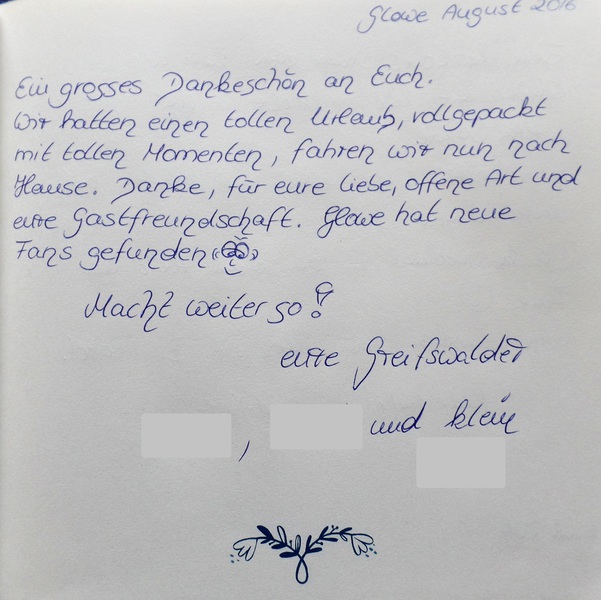 Glowe August 2016
Ein grosses Dankeschön an Euch.
Wir hatten einen tollen Urlaub, vollgepackt
mit tollen Momenten, fahren wir nun nach
Hause. Danke, für eure liebe, offene Art und
eure Gastfreundschaft. Glowe hat neue
Fans gefunden
Macht weiter so!
eure Greifswalder
, und klein